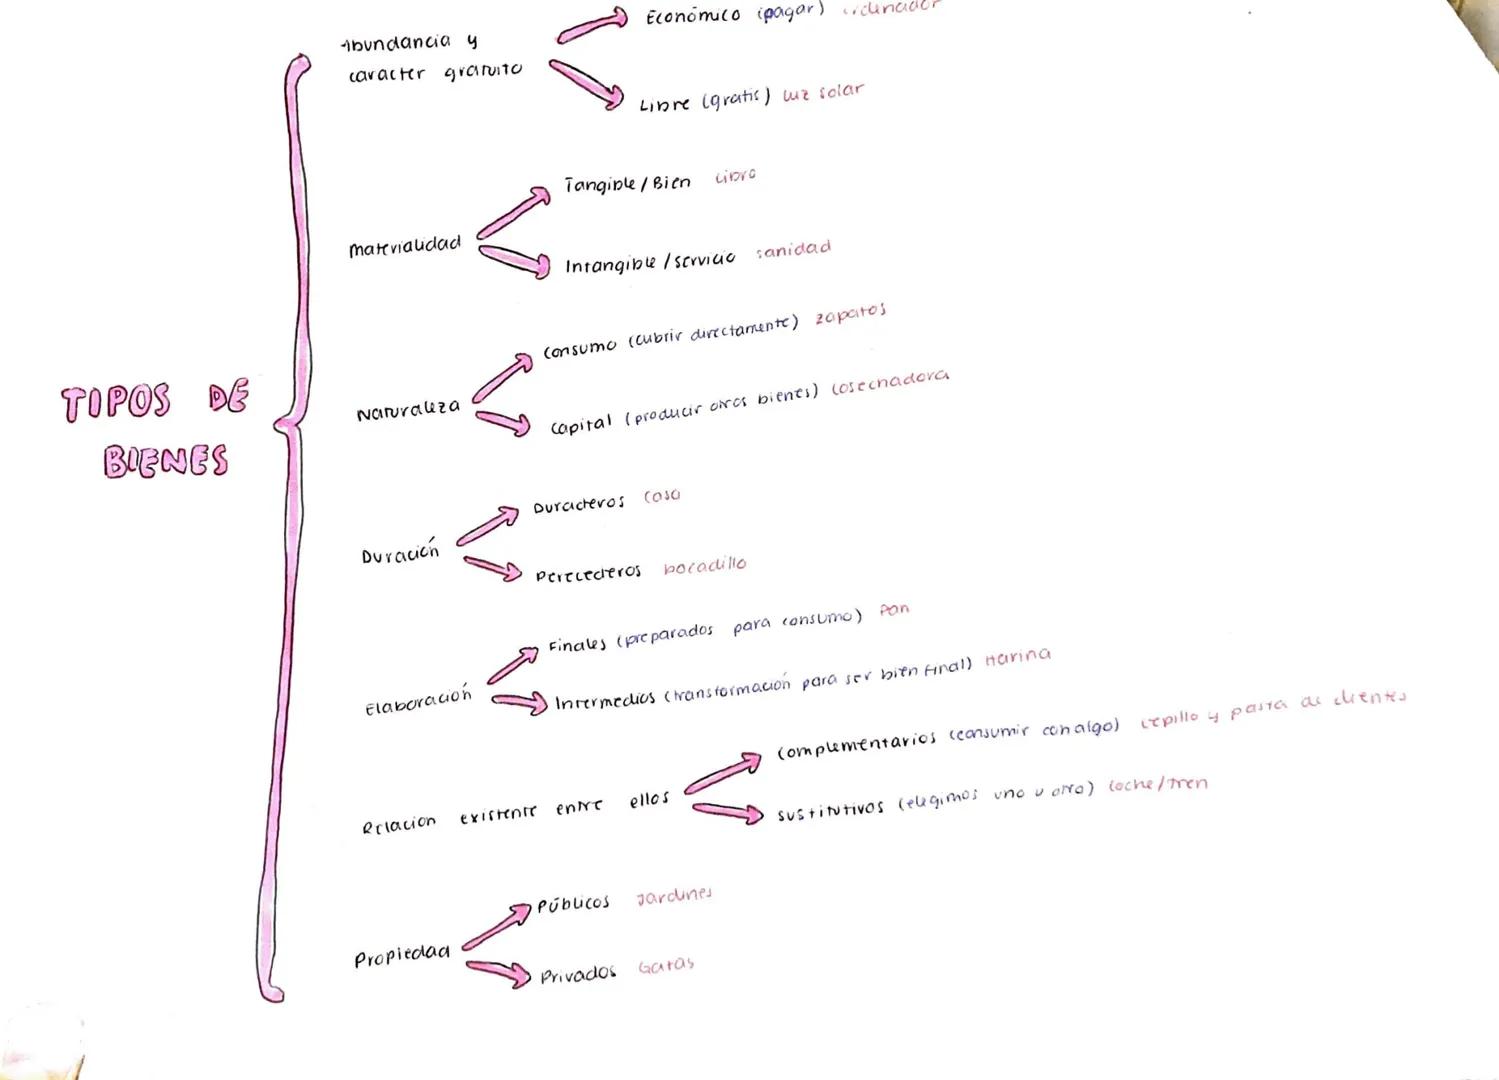 TIPOS DE
BIENES
Abundancia y
caracter gratuito
Económico (pagar) ordenador
Libre (gratis) luz solar
Materialidad
Tangible / Bien Libro
Intangible / servicio sanidad
Naturaleza
Consumo (cubrir directamente) zapatos
Capital (producir otros bienes) Cosechadora
Duración
Duraderos Casa
Perecederos bocadillo
Elaboración
Finales (preparados para consumo) Pan
Intermedios (transformación para ser bien final) Harina
Relacion existente entre ellos
Complementarios (consumir con algo) cepillo y pasta de dientes
Sustitutivos (elegimos uno u otro) Coche/tren
Propiedad
Públicos Jardines
Privados Gafas